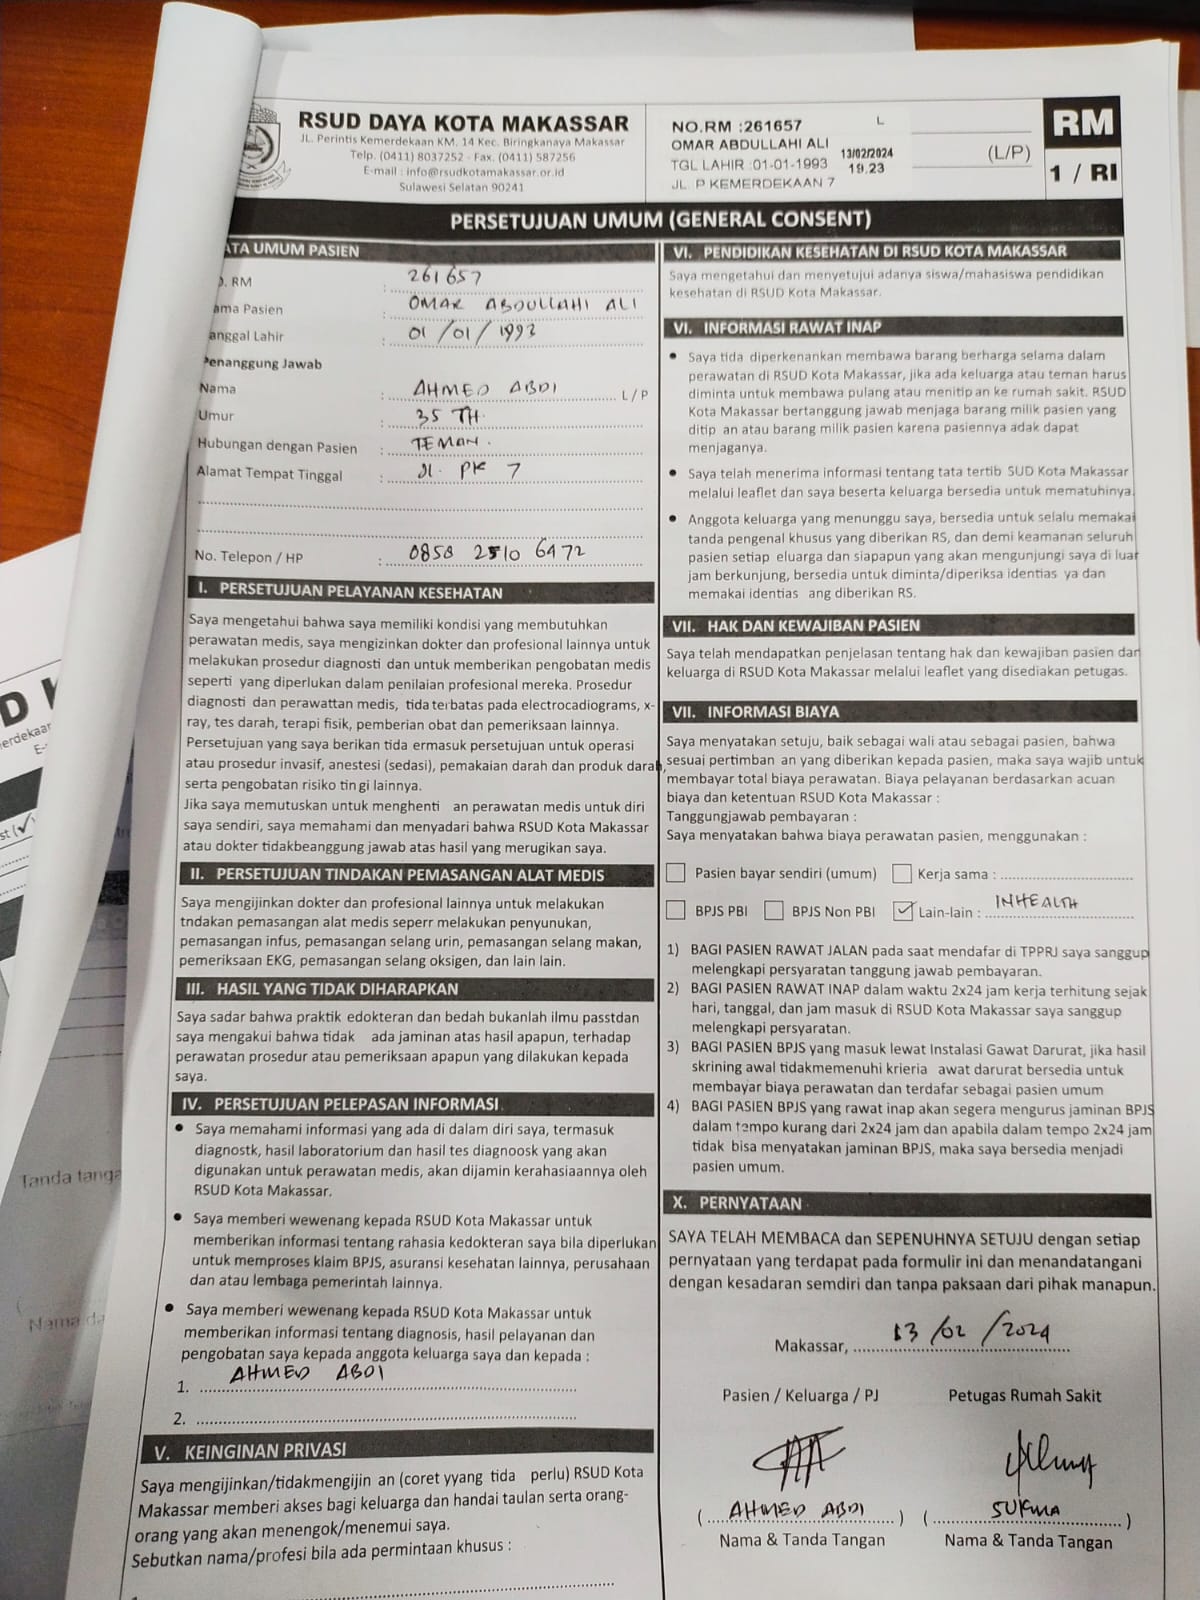 RSUD DAYA KOTA MAKASSAR
JL. Perintis Kemerdekaan KM. 14 Kec. Biringkanaya Makassar
Telp. (0411) 8037252 - Fax. (0411) 587256
E-mail : info@rsudkotamakassar.or.id
Sulawesi Selatan 90241
NO.RM :261657 L
OMAR ABDULLAHI ALI
TGL LAHIR :01-01-1993
JL. P KEMERDEKAAN 7
13/02/2024
19.23
(L/P)
RM
1 / RI
PERSETUJUAN UMUM (GENERAL CONSENT)
ATA UMUM PASIEN
. RM : 261657
ama Pasien : OMAR ABDULLAHI ALI
anggal Lahir : 01/01/1993
Penanggung Jawab
Nama : AHMED ABDI L / P
Umur : 35 TH.
Hubungan dengan Pasien : TEMAN.
Alamat Tempat Tinggal : Jl. PK 7
No. Telepon / HP : 0858 2510 6472
I. PERSETUJUAN PELAYANAN KESEHATAN
Saya mengetahui bahwa saya memiliki kondisi yang membutuhkan
perawatan medis, saya mengizinkan dokter dan profesional lainnya untuk
melakukan prosedur diagnosti dan untuk memberikan pengobatan medis
seperti yang diperlukan dalam penilaian profesional mereka. Prosedur
diagnosti dan perawattan medis, tida terbatas pada electrocadiograms, x-
ray, tes darah, terapi fisik, pemberian obat dan pemeriksaan lainnya.
Persetujuan yang saya berikan tida ermasuk persetujuan untuk operasi
atau prosedur invasif, anestesi (sedasi), pemakaian darah dan produk darah,
serta pengobatan risiko tin gi lainnya.
Jika saya memutuskan untuk menghenti an perawatan medis untuk diri
saya sendiri, saya memahami dan menyadari bahwa RSUD Kota Makassar
atau dokter tidakbeanggung jawab atas hasil yang merugikan saya.
II. PERSETUJUAN TINDAKAN PEMASANGAN ALAT MEDIS
Saya mengijinkan dokter dan profesional lainnya untuk melakukan
tndakan pemasangan alat medis seperr melakukan penyunukan,
pemasangan infus, pemasangan selang urin, pemasangan selang makan,
pemeriksaan EKG, pemasangan selang oksigen, dan lain lain.
III. HASIL YANG TIDAK DIHARAPKAN
Saya sadar bahwa praktik edokteran dan bedah bukanlah ilmu passtdan
saya mengakui bahwa tidak ada jaminan atas hasil apapun, terhadap
perawatan prosedur atau pemeriksaan apapun yang dilakukan kepada
saya.
IV. PERSETUJUAN PELEPASAN INFORMASI
• Saya memahami informasi yang ada di dalam diri saya, termasuk
diagnostk, hasil laboratorium dan hasil tes diagnoosk yang akan
digunakan untuk perawatan medis, akan dijamin kerahasiaannya oleh
RSUD Kota Makassar.
• Saya memberi wewenang kepada RSUD Kota Makassar untuk
memberikan informasi tentang rahasia kedokteran saya bila diperlukan
untuk memproses klaim BPJS, asuransi kesehatan lainnya, perusahaan
dan atau lembaga pemerintah lainnya.
• Saya memberi wewenang kepada RSUD Kota Makassar untuk
memberikan informasi tentang diagnosis, hasil pelayanan dan
pengobatan saya kepada anggota keluarga saya dan kepada :
1. AHMED ABDI
2.
V. KEINGINAN PRIVASI
Saya mengijinkan/tidakmengijin an (coret yyang tida perlu) RSUD Kota
Makassar memberi akses bagi keluarga dan handai taulan serta orang-
orang yang akan menengok/menemui saya.
Sebutkan nama/profesi bila ada permintaan khusus :
VI. PENDIDIKAN KESEHATAN DI RSUD KOTA MAKASSAR
Saya mengetahui dan menyetujui adanya siswa/mahasiswa pendidikan
kesehatan di RSUD Kota Makassar.
VI. INFORMASI RAWAT INAP
• Saya tida diperkenankan membawa barang berharga selama dalam
perawatan di RSUD Kota Makassar, jika ada keluarga atau teman harus
diminta untuk membawa pulang atau menitip an ke rumah sakit. RSUD
Kota Makassar bertanggung jawab menjaga barang milik pasien yang
ditip an atau barang milik pasien karena pasiennya adak dapat
menjaganya.
• Saya telah menerima informasi tentang tata tertib SUD Kota Makassar
melalui leaflet dan saya beserta keluarga bersedia untuk mematuhinya.
• Anggota keluarga yang menunggu saya, bersedia untuk selalu memakai
tanda pengenal khusus yang diberikan RS, dan demi keamanan seluruh
pasien setiap eluarga dan siapapun yang akan mengunjungi saya di luar
jam berkunjung, bersedia untuk diminta/diperiksa identias ya dan
memakai identias ang diberikan RS.
VII. HAK DAN KEWAJIBAN PASIEN
Saya telah mendapatkan penjelasan tentang hak dan kewajiban pasien dan
keluarga di RSUD Kota Makassar melalui leaflet yang disediakan petugas.
VII. INFORMASI BIAYA
Saya menyatakan setuju, baik sebagai wali atau sebagai pasien, bahwa
sesuai pertimban an yang diberikan kepada pasien, maka saya wajib untuk
membayar total biaya perawatan. Biaya pelayanan berdasarkan acuan
biaya dan ketentuan RSUD Kota Makassar :
Tanggungjawab pembayaran :
Saya menyatakan bahwa biaya perawatan pasien, menggunakan :
Pasien bayar sendiri (umum) Kerja sama :
BPJS PBI BPJS Non PBI ✓ Lain-lain : INHEALTH
1) BAGI PASIEN RAWAT JALAN pada saat mendafar di TPPRJ saya sanggup
melengkapi persyaratan tanggung jawab pembayaran.
2) BAGI PASIEN RAWAT INAP dalam waktu 2x24 jam kerja terhitung sejak
hari, tanggal, dan jam masuk di RSUD Kota Makassar saya sanggup
melengkapi persyaratan.
3) BAGI PASIEN BPJS yang masuk lewat Instalasi Gawat Darurat, jika hasil
skrining awal tidakmemenuhi krieria awat darurat bersedia untuk
membayar biaya perawatan dan terdafar sebagai pasien umum
4) BAGI PASIEN BPJS yang rawat inap akan segera mengurus jaminan BPJS
dalam tempo kurang dari 2x24 jam dan apabila dalam tempo 2x24 jam
tidak bisa menyatakan jaminan BPJS, maka saya bersedia menjadi
pasien umum.
X. PERNYATAAN
SAYA TELAH MEMBACA dan SEPENUHNYA SETUJU dengan setiap
pernyataan yang terdapat pada formulir ini dan menandatangani
dengan kesadaran semdiri dan tanpa paksaan dari pihak manapun.
Makassar, 13/02/2024
Pasien / Keluarga / PJ Petugas Rumah Sakit
( AHMED ABDI ) ( SUKMA )
Nama & Tanda Tangan Nama & Tanda Tangan
Tanda tanga
Nama da